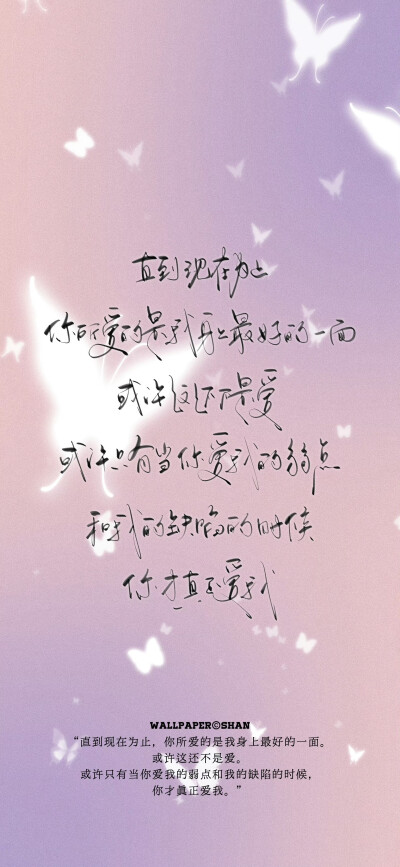 直到现在为止
你所爱的是我身上最好的一面
或许这还不是爱
或许只有当你爱我的弱点
和我的缺陷的时候
你才真正爱我
WALLPAPER©SHAN
“直到现在为止，你所爱的是我身上最好的一面。
或许这还不是爱。
或许只有当你爱我的弱点和我的缺陷的时候，
你才真正爱我。”